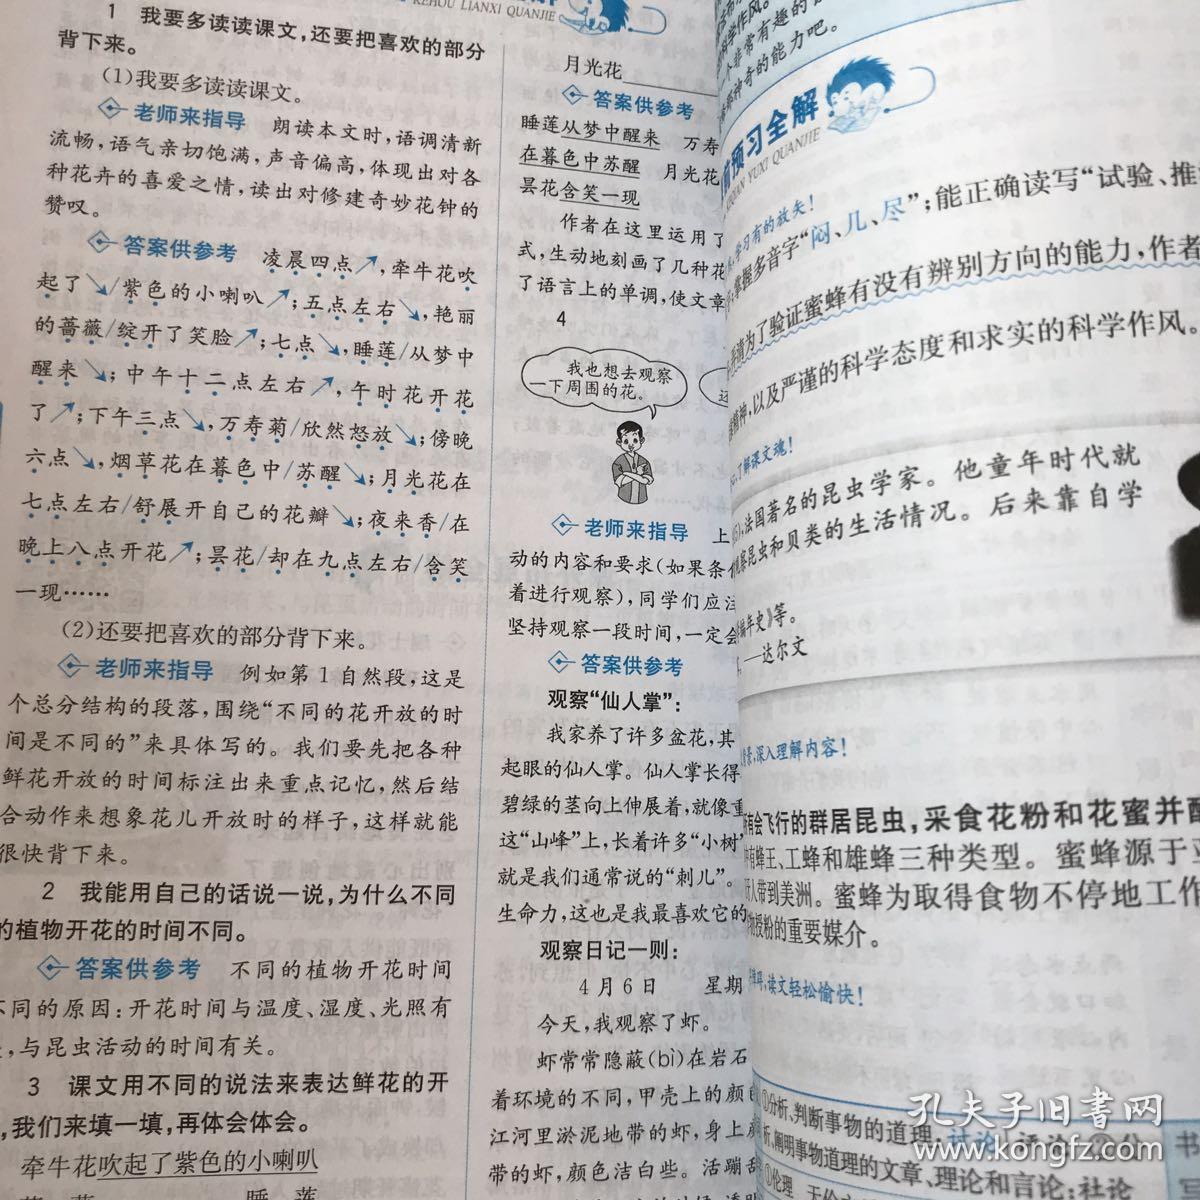 KEHOU LIANXI QUANJIE
1 我要多读读课文,还要把喜欢的部分
背下来。
(1)我要多读读课文。
老师来指导 朗读本文时,语调清新
流畅,语气亲切饱满,声音偏高,体现出对各
种花卉的喜爱之情,读出对修建奇妙花钟的
赞叹。
答案供参考 凌晨四点↗,牵牛花吹
起了↘/紫色的小喇叭↗;五点左右↘,艳丽
的蔷薇/绽开了笑脸↗;七点↘,睡莲/从梦中
醒来↘;中午十二点左右↗,午时花开花
了↗;下午三点↘,万寿菊/欣然怒放↘;傍晚
六点↘,烟草花在暮色中/苏醒↘;月光花在
七点左右/舒展开自己的花瓣↘;夜来香/在
晚上八点开花↗;昙花/却在九点左右/含笑
一现……
(2)还要把喜欢的部分背下来。
老师来指导 例如第1自然段,这是
个总分结构的段落,围绕“不同的花开放的时
间是不同的”来具体写的。我们要先把各种
鲜花开放的时间标注出来重点记忆,然后结
合动作来想象花儿开放时的样子,这样就能
很快背下来。
2 我能用自己的话说一说,为什么不同
的植物开花的时间不同。
答案供参考 不同的植物开花时间
不同的原因:开花时间与温度、湿度、光照有
,与昆虫活动的时间有关。
3 课文用不同的说法来表达鲜花的开
,我们来填一填,再体会体会。
牵牛花吹起了紫色的小喇叭
睡莲
月光花
答案供参考
睡莲从梦中醒来 万寿
在暮色中苏醒 月光花
昙花含笑一现
作者在这里运用了
式,生动地刻画了几种花
了语言上的单调,使文章
4
我也想去观察
一下周围的花。
老师来指导 上
动的内容和要求(如果条
着进行观察),同学们应注
坚持观察一段时间,一定会
答案供参考
观察“仙人掌”:
我家养了许多盆花,其
起眼的仙人掌。仙人掌长得
碧绿的茎向上伸展着,就像重
这“山峰”上,长着许多“小树”
就是我们通常说的“刺儿”。
生命力,这也是我最喜欢它的
观察日记一则:
4月6日 星期
今天,我观察了虾。
虾常常隐蔽(bì)在岩石
着环境的不同,甲壳上的颜色
江河里淤泥地带的虾,身上
带的虾,颜色洁白些。活蹦
科学作风。
个非常有趣的
神奇的能力吧。
前预习全解
QIAN YUXI QUANJIE
学习有的放矢!
掌握多音字“闷、几、尽”;能正确读写“试验、推
为了验证蜜蜂有没有辨别方向的能力,作者
精神,以及严谨的科学态度和求实的科学作风。
了解课文魂!
,法国著名的昆虫学家。他童年时代就
观察昆虫和贝类的生活情况。后来靠自学
编年史》等。
——达尔文
背景,深入理解内容!
有会飞行的群居昆虫,采食花粉和花蜜并酿
有蜂王、工蜂和雄蜂三种类型。蜜蜂源于亚
人带到美洲。蜜蜂为取得食物不停地工作
授粉的重要媒介。
障碍,读文轻松愉快!
①分析、判断事物的道理
讨论 评论
析,阐明事物道理的文章、理论和言论:社论
①伦理
书
写
孔夫子旧书网
kongfz.com